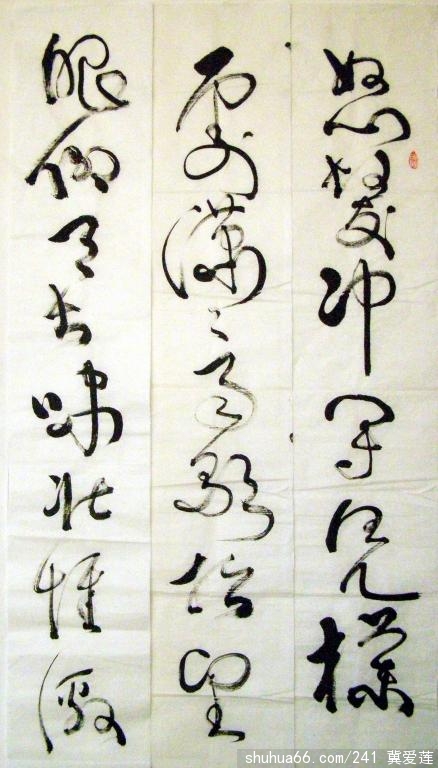 怒髮冲冠凭栏
處潇〻雨歇抬望
眼仰天长啸壮怀激
shuhua66.com/241 冀爱莲